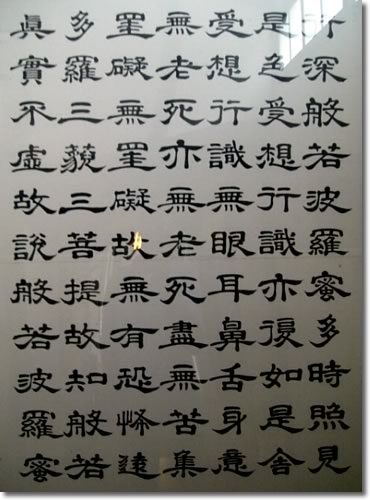 行深般若波羅蜜多時照見
是色受想行識亦復如是舍
受想行識無眼耳鼻舌身意
無老死亦無老死盡無苦集
罣礙無罣礙故無有恐怖遠
多羅三藐三菩提故知般若
眞實不虛故說般若波羅蜜